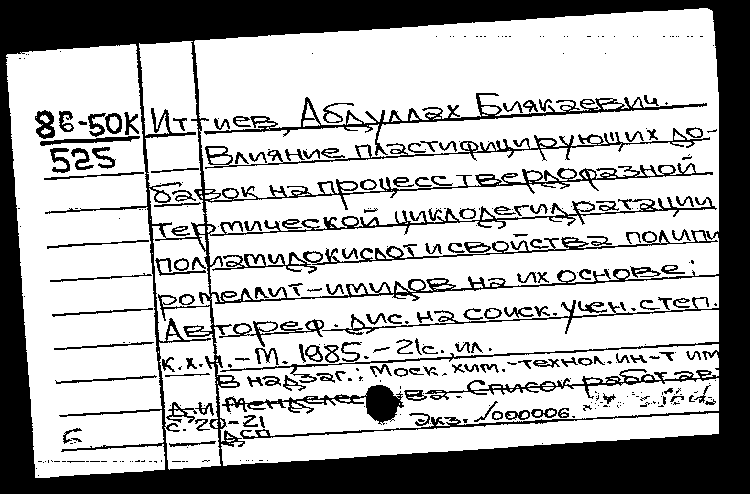 86-50К Иттиев, Абдуллах Биякаевич.
525 Влияние пластифицирующих до-
бавок на процесс твердофазной
термической циклодегидратации
полиамидокислот и свойства полипи
ромеллит-имидов на их основе:
Автореф. дис. на соиск. учен. степ.
к.х.н. - М., 1985. - 21с., ил.
В надзаг.: Моск. хим.-технол. ин-т им
Д.И. Менделее ва. Список работ ав
с. 20-21 Экз. №000006.
Б ДСП